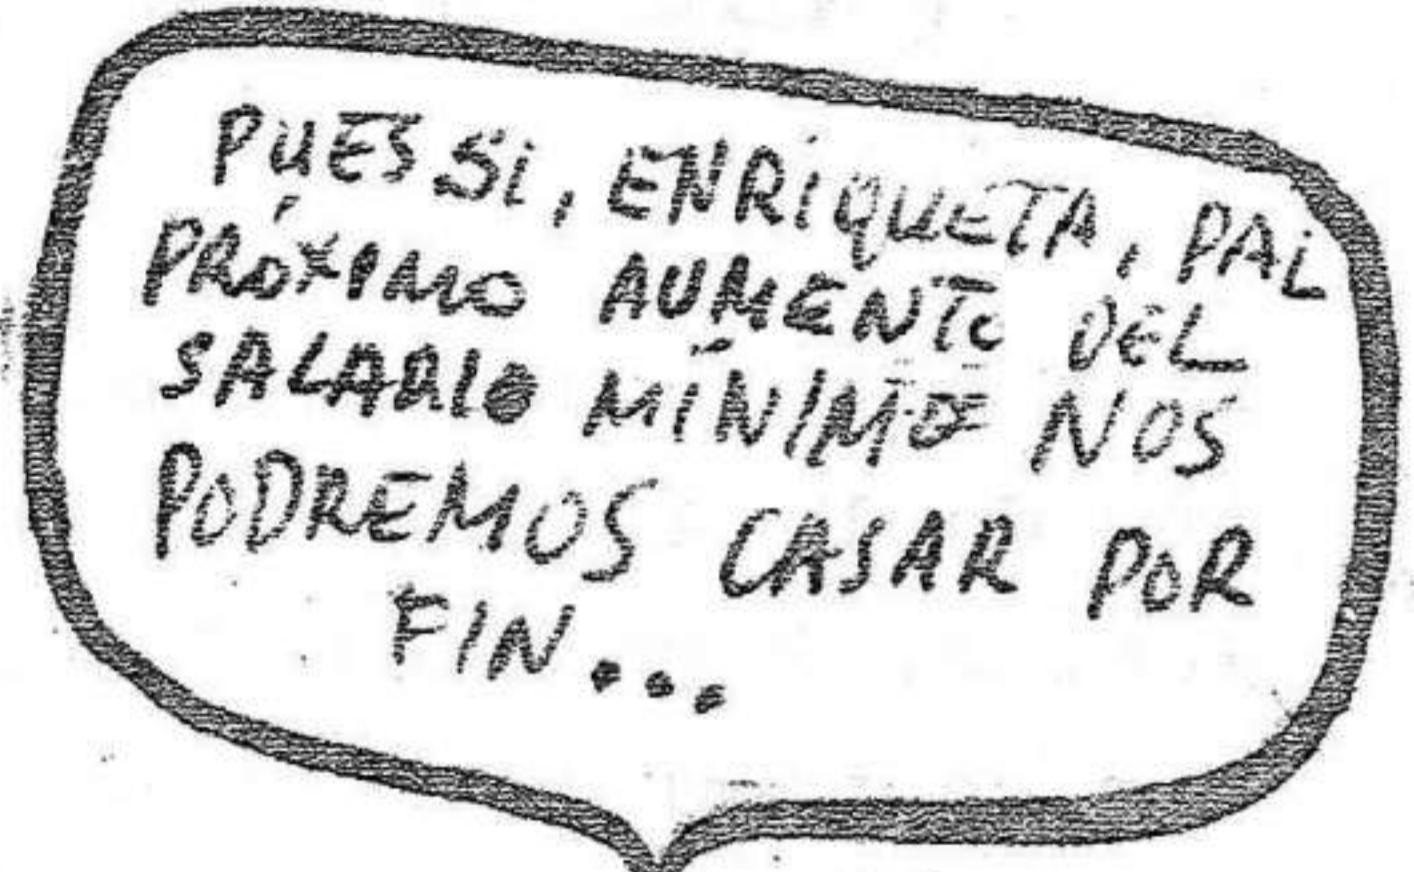 PUES SI, ENRIQUETA, PAL
PRÓXIMO AUMENTO DEL
SALARIO MÍNIMO NOS
PODREMOS CASAR POR
FIN...